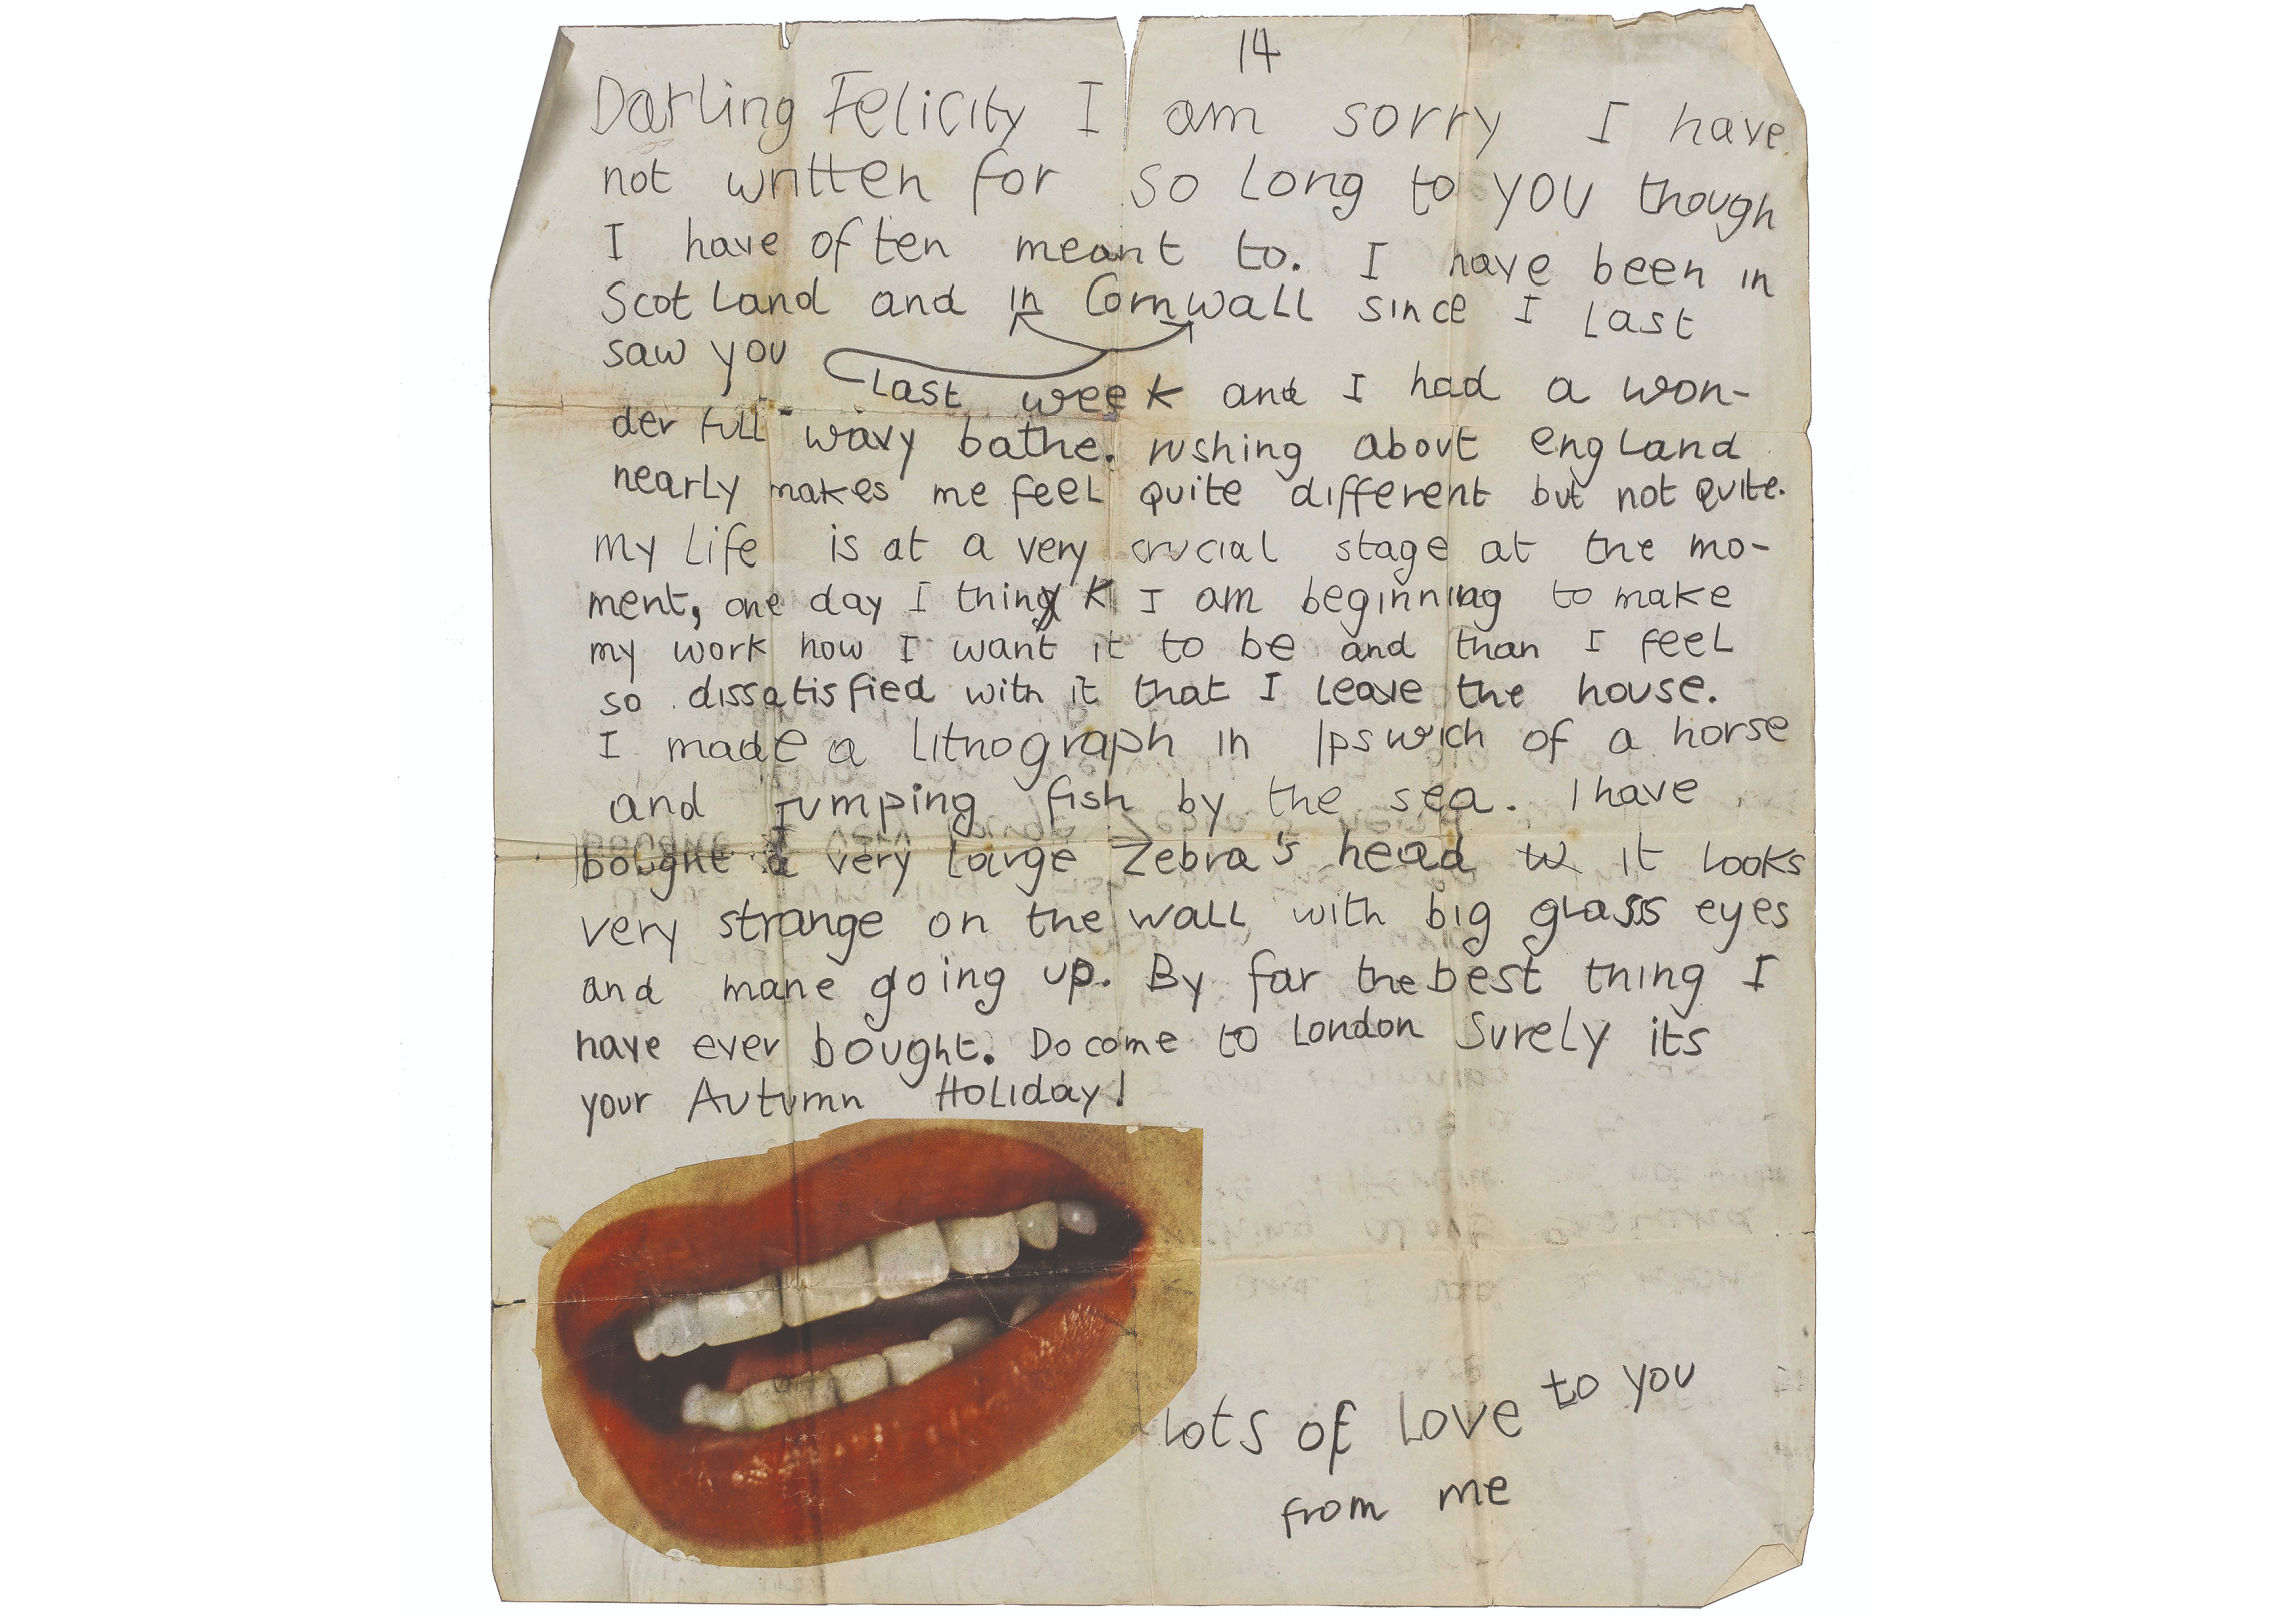 14
Darling Felicity I am sorry I have
not written for so long to you though
I have often meant to. I have been in
Scotland and in Cornwall since I last
saw you
last week and I had a won-
derfull wavy bathe. rushing about england
nearly makes me feel quite different but not quite.
my life is at a very crucial stage at the mo-
ment, one day I think I am beginning to make
my work how I want it to be and than I feel
so dissatisfied with it that I leave the house.
I made a lithograph in Ipswich of a horse
and jumping fish by the sea. I have
bought a very large Zebra's head w it looks
very strange on the wall with big glass eyes
and mane going up. By far the best thing I
have ever bought. Do come to London Surely its
your Autumn Holiday!
lots of love to you
from me